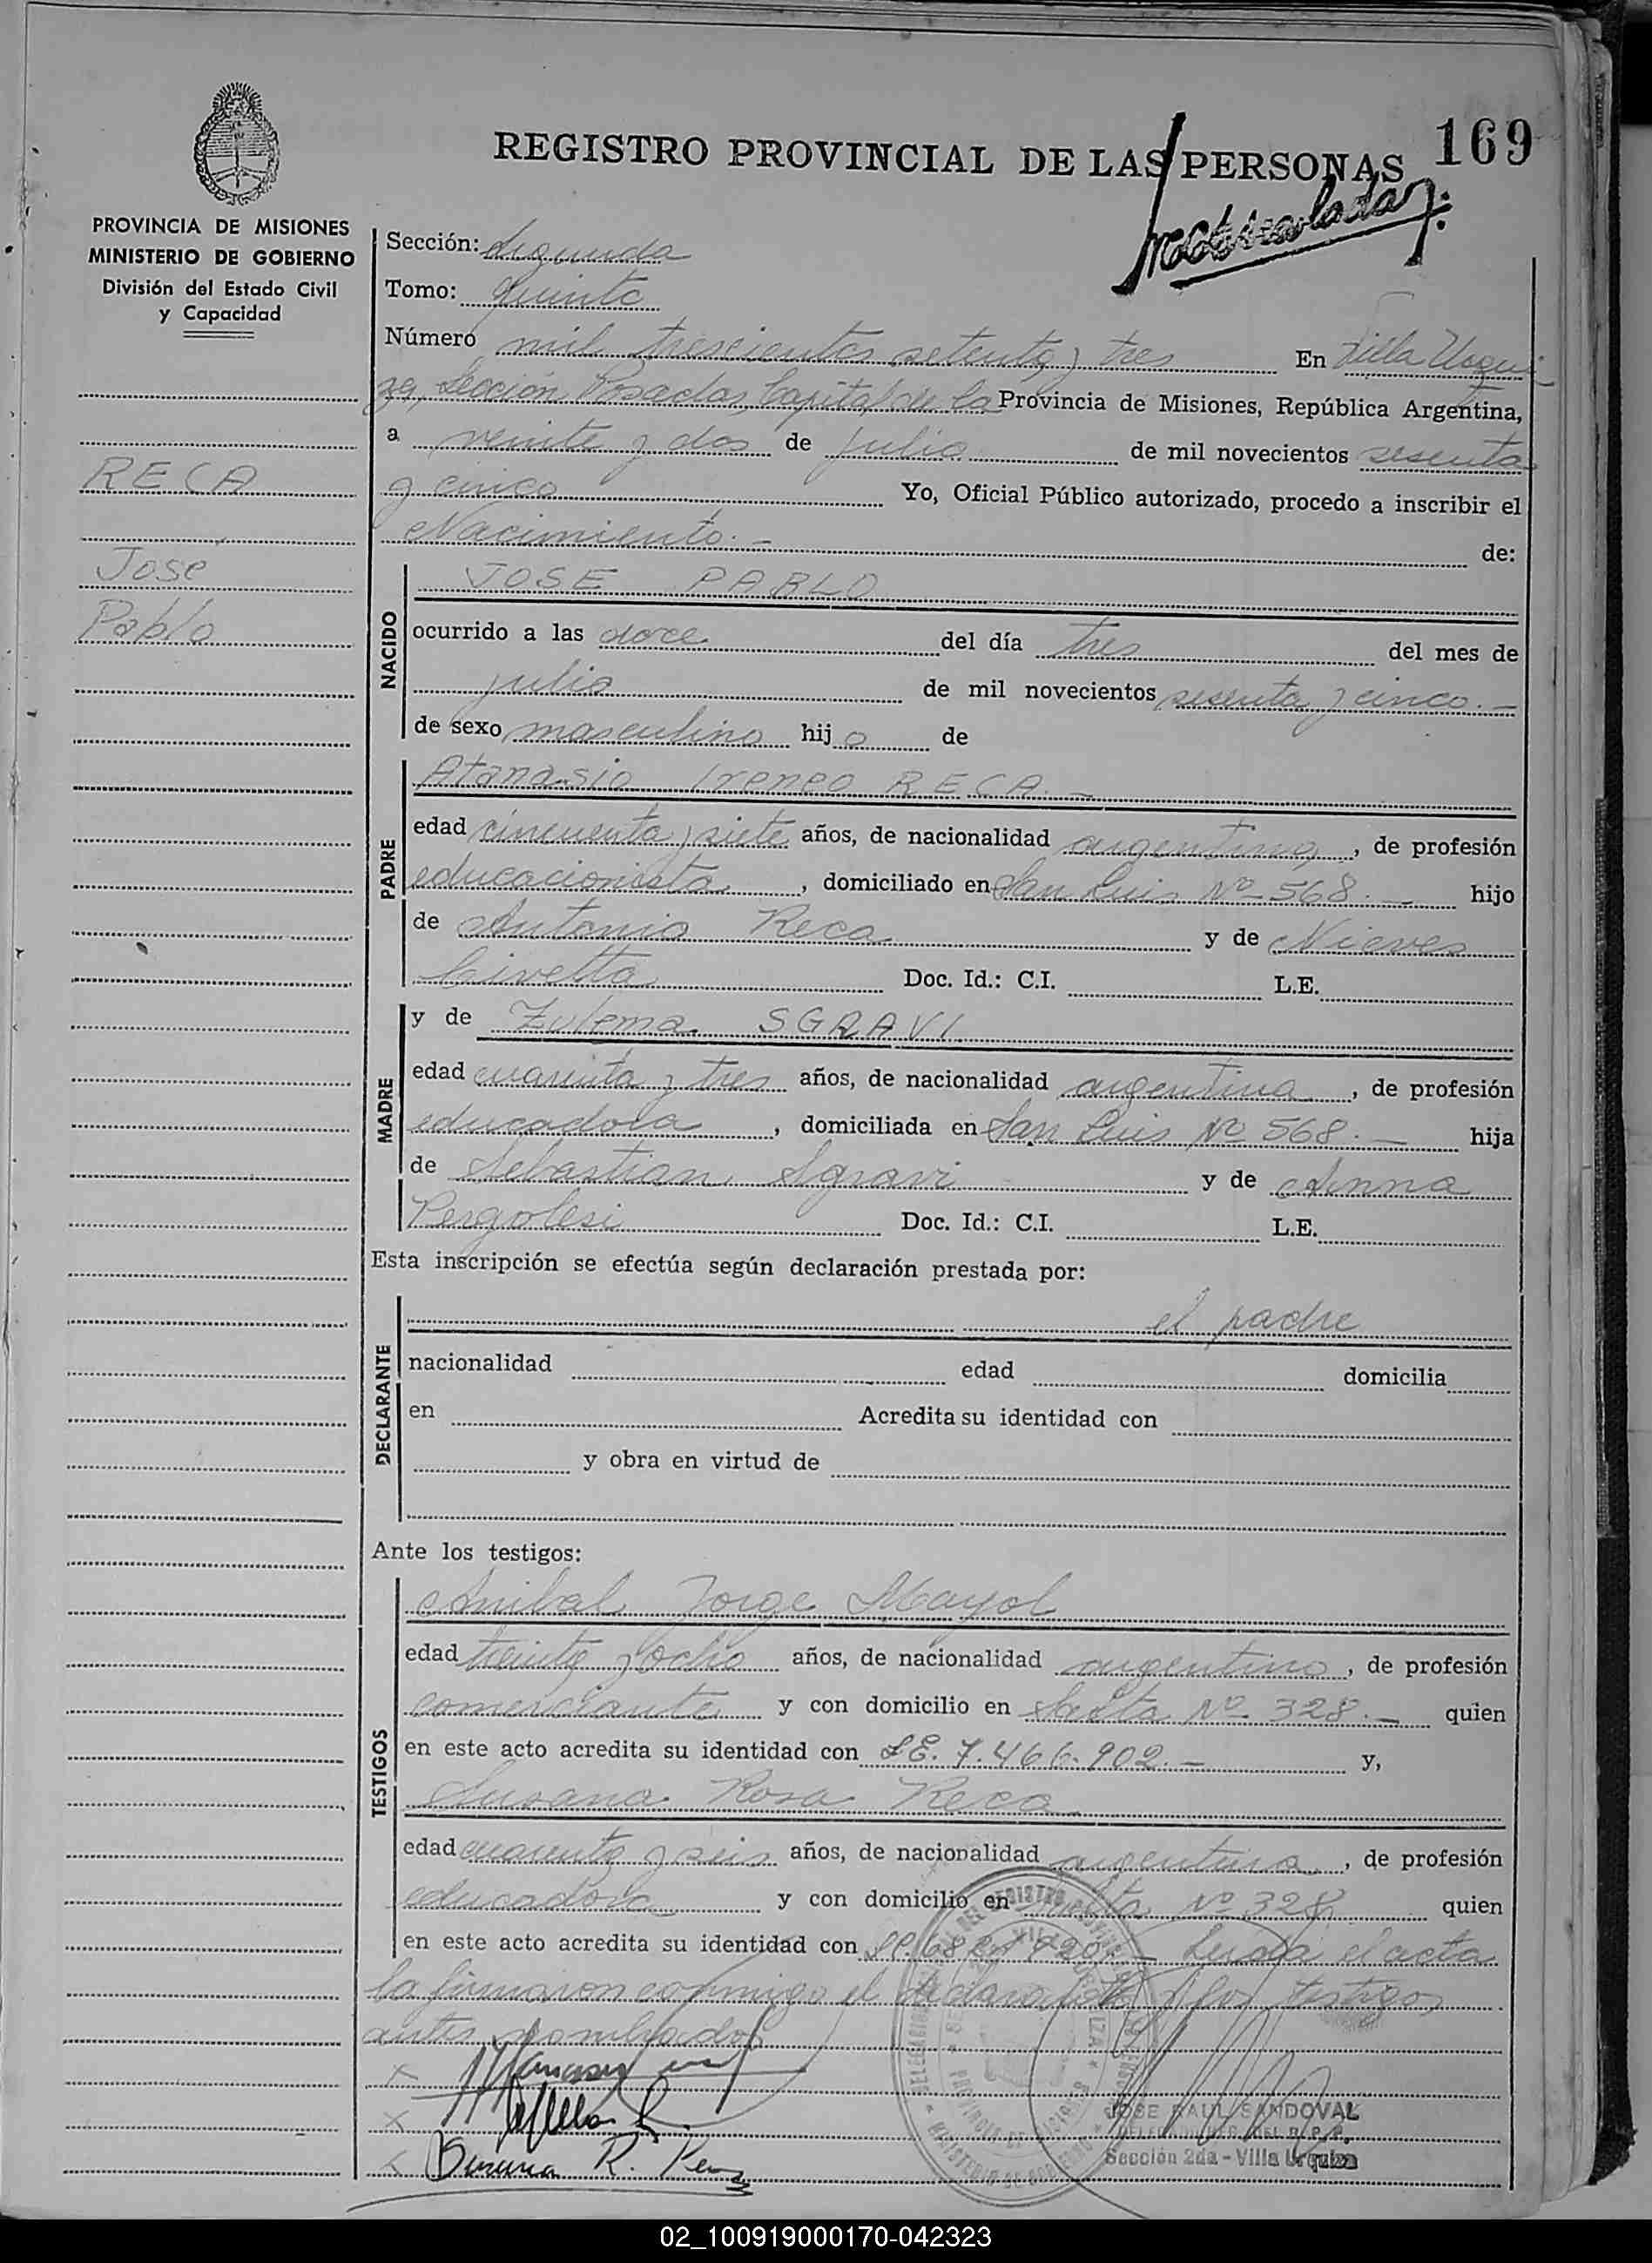 169
REGISTRO PROVINCIAL DE LAS PERSONAS
PROVINCIA DE MISIONES
MINISTERIO DE GOBIERNO
División del Estado Civil
y Capacidad
RECA
José
Pablo
Sección: Segunda
Tomo: Quinto
Número mil trescientos setenta y tres En Villa Urqui
za, Sección Posadas, Capital de la Provincia de Misiones, República Argentina,
a veinte y dos de julio de mil novecientos sesenta
y cinco Yo, Oficial Público autorizado, procedo a inscribir el
Nacimiento.- de:
NACIDO
JOSE PABLO
ocurrido a las doce del día tres del mes de
julio de mil novecientos sesenta y cinco.-
de sexo masculino hijo de
PADRE
Atanasio Ireneo RECA.-
edad cincuenta y siete años, de nacionalidad argentino, de profesión
educacionista, domiciliado en San Luis Nº 568.- hijo
de Antonio Reca y de Nieves
Civetta Doc. Id.: C.I. L.E.
MADRE
y de Zulema SGRAVI
edad cuarenta y tres años, de nacionalidad argentina, de profesión
educadora, domiciliada en San Luis Nº 568.- hija
de Sebastian Sgravi y de Anna
Pergolesi Doc. Id.: C.I. L.E.
Esta inscripción se efectúa según declaración prestada por:
DECLARANTE
el padre
nacionalidad edad domicilia
en Acredita su identidad con
y obra en virtud de
Ante los testigos:
TESTIGOS
Anibal Jorge Mayol
edad treinta y ocho años, de nacionalidad argentino, de profesión
comerciante y con domicilio en Salta Nº 328.- quien
en este acto acredita su identidad con L.E. 7.466.902.- y,
Susana Rosa Reca
edad cuarenta y seis años, de nacionalidad argentina, de profesión
educadora y con domicilio en Salta Nº 328 quien
en este acto acredita su identidad con Leida el acta
la firmaron conmigo el declarante y los testigos
antes nombrados
Susana R. Reca
JOSE RAUL SANDOVAL
Sección 2da - Villa Urquiza
02_100919000170-042323